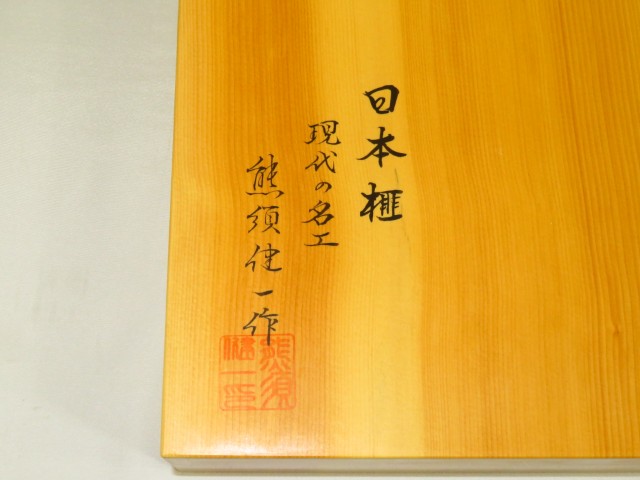 日本榧
現代の名工
熊須健一作
熊須健一印